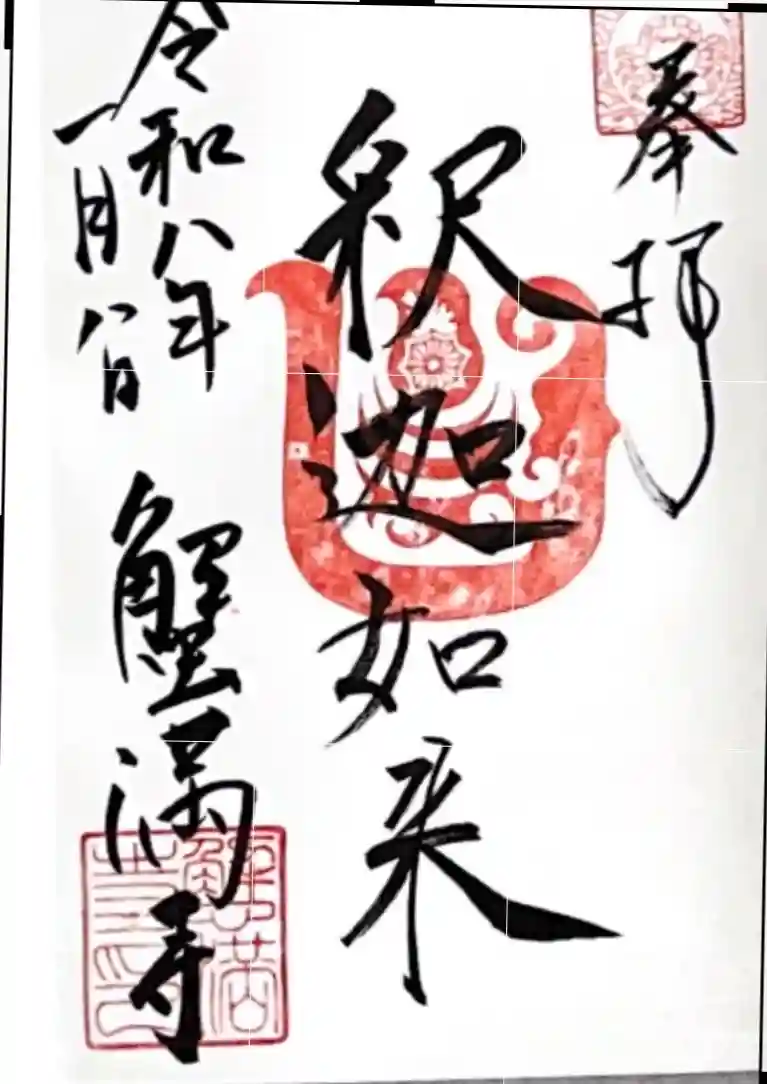 奉拝
釈迦如来
令和八年
一月八日
蟹満寺